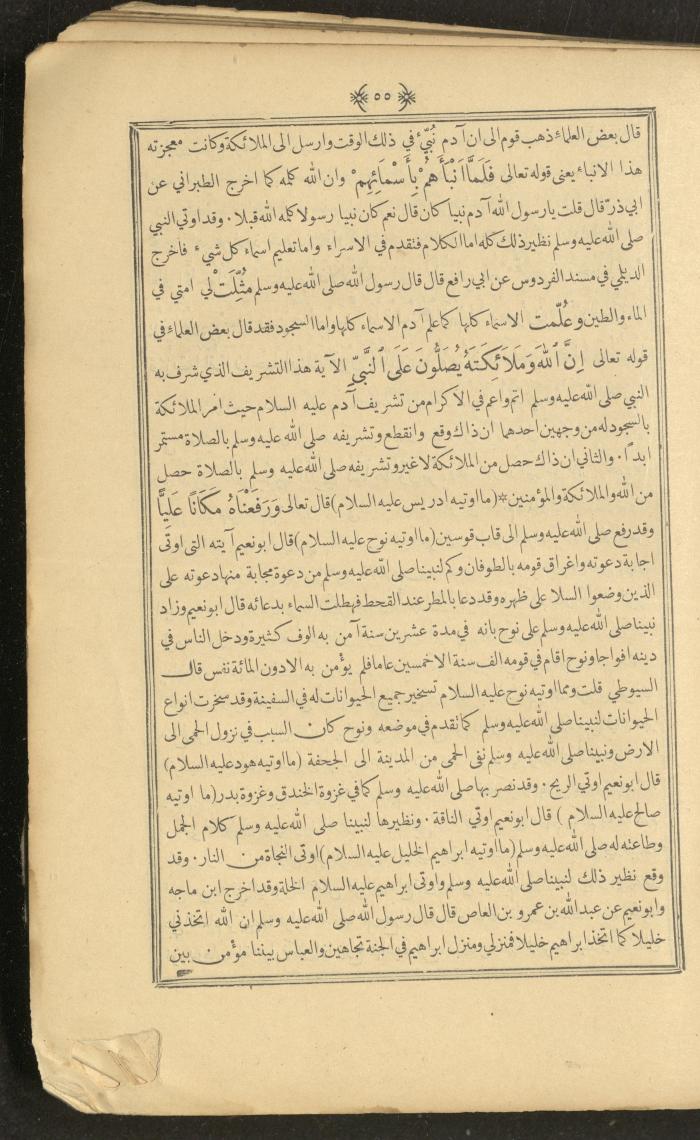 ٥٥
قال بعض العلماء ذهب قوم الى ان آدم نُبّئ في ذلك الوقت وارسل الى الملائكة وكانت معجزته
هذا الانباء يعنى قوله تعالى فَلَمَّا اَنْبَأَهُمْ بِأَسْمَائِهِمْ وان الله كلمه كما اخرج الطبراني عن
ابي ذرّ قال قلت يا رسول الله آدم نبيا كان قال نعم كان نبيا رسولا كلمه الله قبلا ٠ وقد اوتي النبي
صلى الله عليه وسلم نظير ذلك كله اما الكلام فتقدم في الاسراء واما تعليم اسماء كل شيء فاخرج
الديلمي في مسند الفردوس عن ابي رافع قال قال رسول الله صلى الله عليه وسلم مُثِّلَتْ لي امتي في
الماء والطين وعُلّمت الاسماء كلها كما علم آدم الاسماء كلها واما السجود فقد قال بعض العلماء في
قوله تعالى اِنَّ ٱللهَ وَمَلاَئِكَتَهُ يُصَلُّونَ عَلَى ٱلنَّبِيّ الآية هذا التشريف الذي شرف به
النبي صلى الله عليه وسلم اتم واعم في الاكرام من تشريف آدم عليه السلام حيث امر الملائكة
بالسجود له من وجهين احدهما ان ذاك وقع وانقطع وتشريفه صلى الله عليه وسلم بالصلاة مستمر
ابدًا ٠ والثاني ان ذاك حصل من الملائكة لا غير وتشريفه صلى الله عليه وسلم بالصلاة حصل
من الله والملائكة والمؤمنين * (ما اوتيه ادريس عليه السلام) قال تعالى وَرَفَعْنَاهُ مَكَانًا عَلِيًّا
وقد رفع صلى الله عليه وسلم الى قاب قوسين (ما اوتيه نوح عليه السلام) قال ابو نعيم آيته التى اوتى
اجابة دعوته واغراق قومه بالطوفان وكم لنبينا صلى الله عليه وسلم من دعوة مجابة منها دعوته على
الذين وضعوا السلا على ظهره وقد دعا بالمطر عند القحط فهطلت السماء بدعائه قال ابو نعيم وزاد
نبينا صلى الله عليه وسلم على نوح بانه في مدة عشرين سنة آمن به الوف كثيرة ودخل الناس في
دينه افواجا ونوح اقام في قومه الف سنة الا خمسين عاما فلم يؤمن به الا دون المائة نفس قال
السيوطي قلت ومما اوتيه نوح عليه السلام تسخير جميع الحيوانات له في السفينة وقد سخرت انواع
الحيوانات لنبينا صلى الله عليه وسلم كما تقدم في موضعه ونوح كان السبب في نزول الحمى الى
الارض ونبينا صلى الله عليه وسلم نفى الحمى من المدينة الى الجحفة (ما اوتيه هود عليه السلام)
قال ابو نعيم اوتي الريح ٠ وقد نصر بها صلى الله عليه وسلم كما في غزوة الخندق وغزوة بدر (ما اوتيه
صالح عليه السلام) قال ابو نعيم اوتي الناقة ٠ ونظيرها لنبينا صلى الله عليه وسلم كلام الجمل
وطاعته له صلى الله عليه وسلم (ما اوتيه ابراهيم الخليل عليه السلام) اوتى النجاة من النار ٠ وقد
وقع نظير ذلك لنبينا صلى الله عليه وسلم واوتى ابراهيم عليه السلام الخلة وقد اخرج ابن ماجه
وابو نعيم عن عبد الله بن عمرو بن العاص قال قال رسول الله صلى الله عليه وسلم ان الله اتخذني
خليلا كما اتخذ ابراهيم خليلا فمنزلي ومنزل ابراهيم في الجنة تجاهين والعباس بيننا مؤمن بين